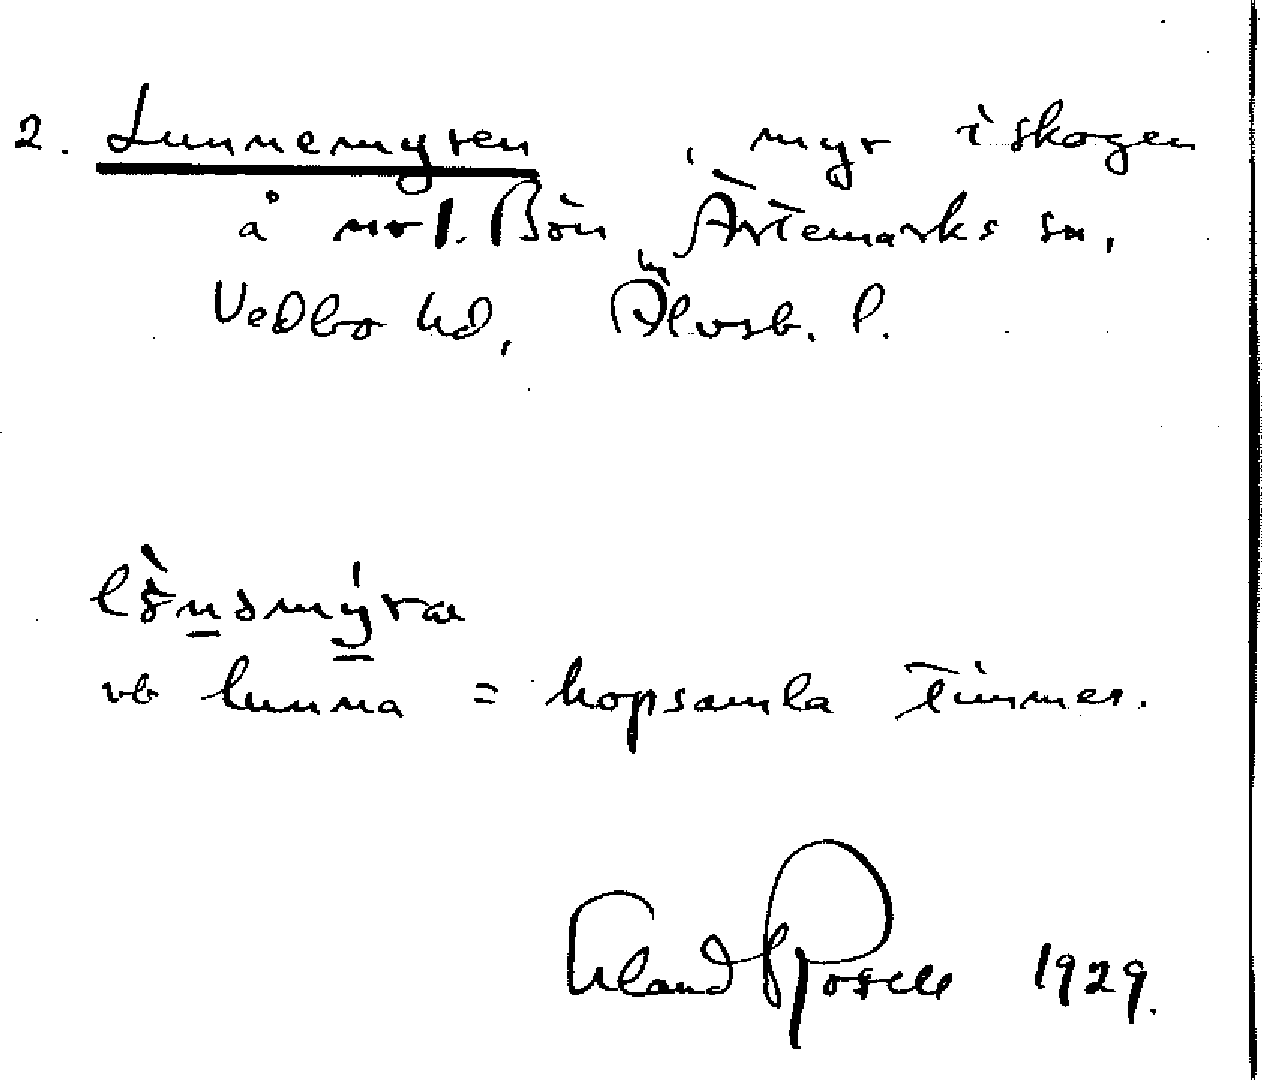 2. Lunnemyren, myr i skogen
å nr 1. Bön, Ärtemarks sn,
Vedbo hd, Älvsb. l.
vb lunna = hopsamla timmer.
Erland Rosell 1929.